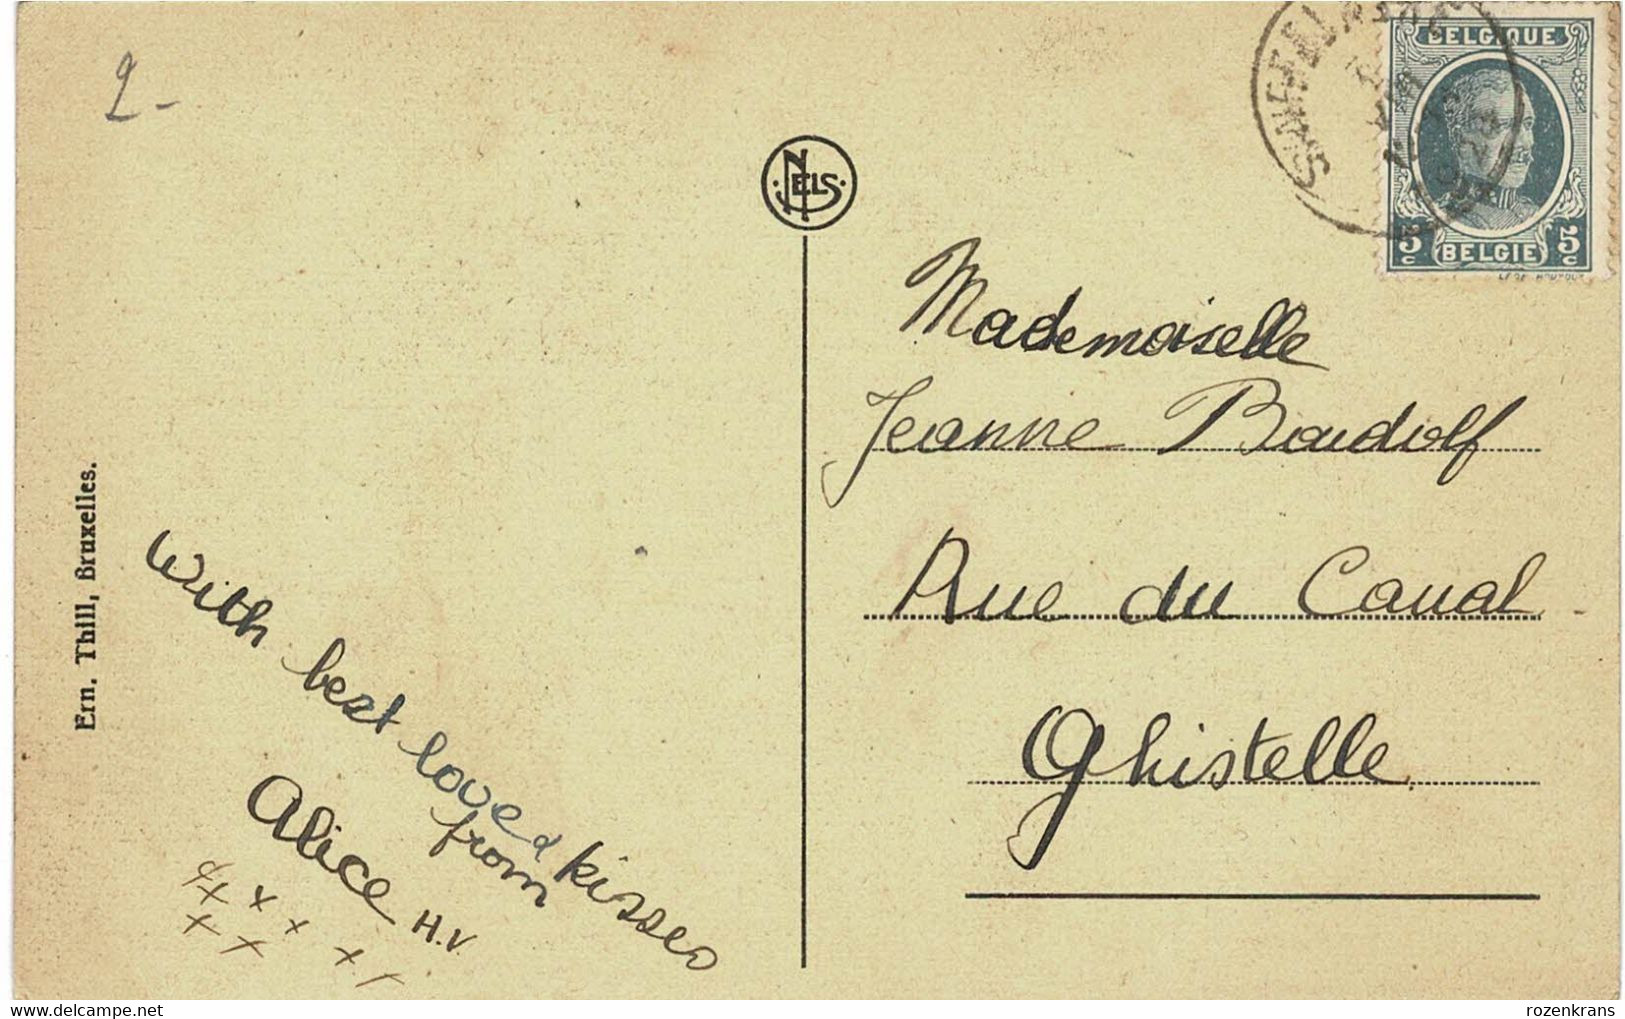 2-
NELS
BELGIQUE
5c BELGIE 5c
Mademoiselle
Jeanne Baudolf
Rue du Canal
Ghistelle
With best love & kisses
from
Alice H.V.
x x x x
x x x
Ern. Thill, Bruxelles.
delcampe.net
rozenkrans